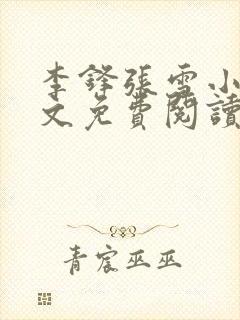 李鋒張雪小
文免費閱讀
青宸巫巫